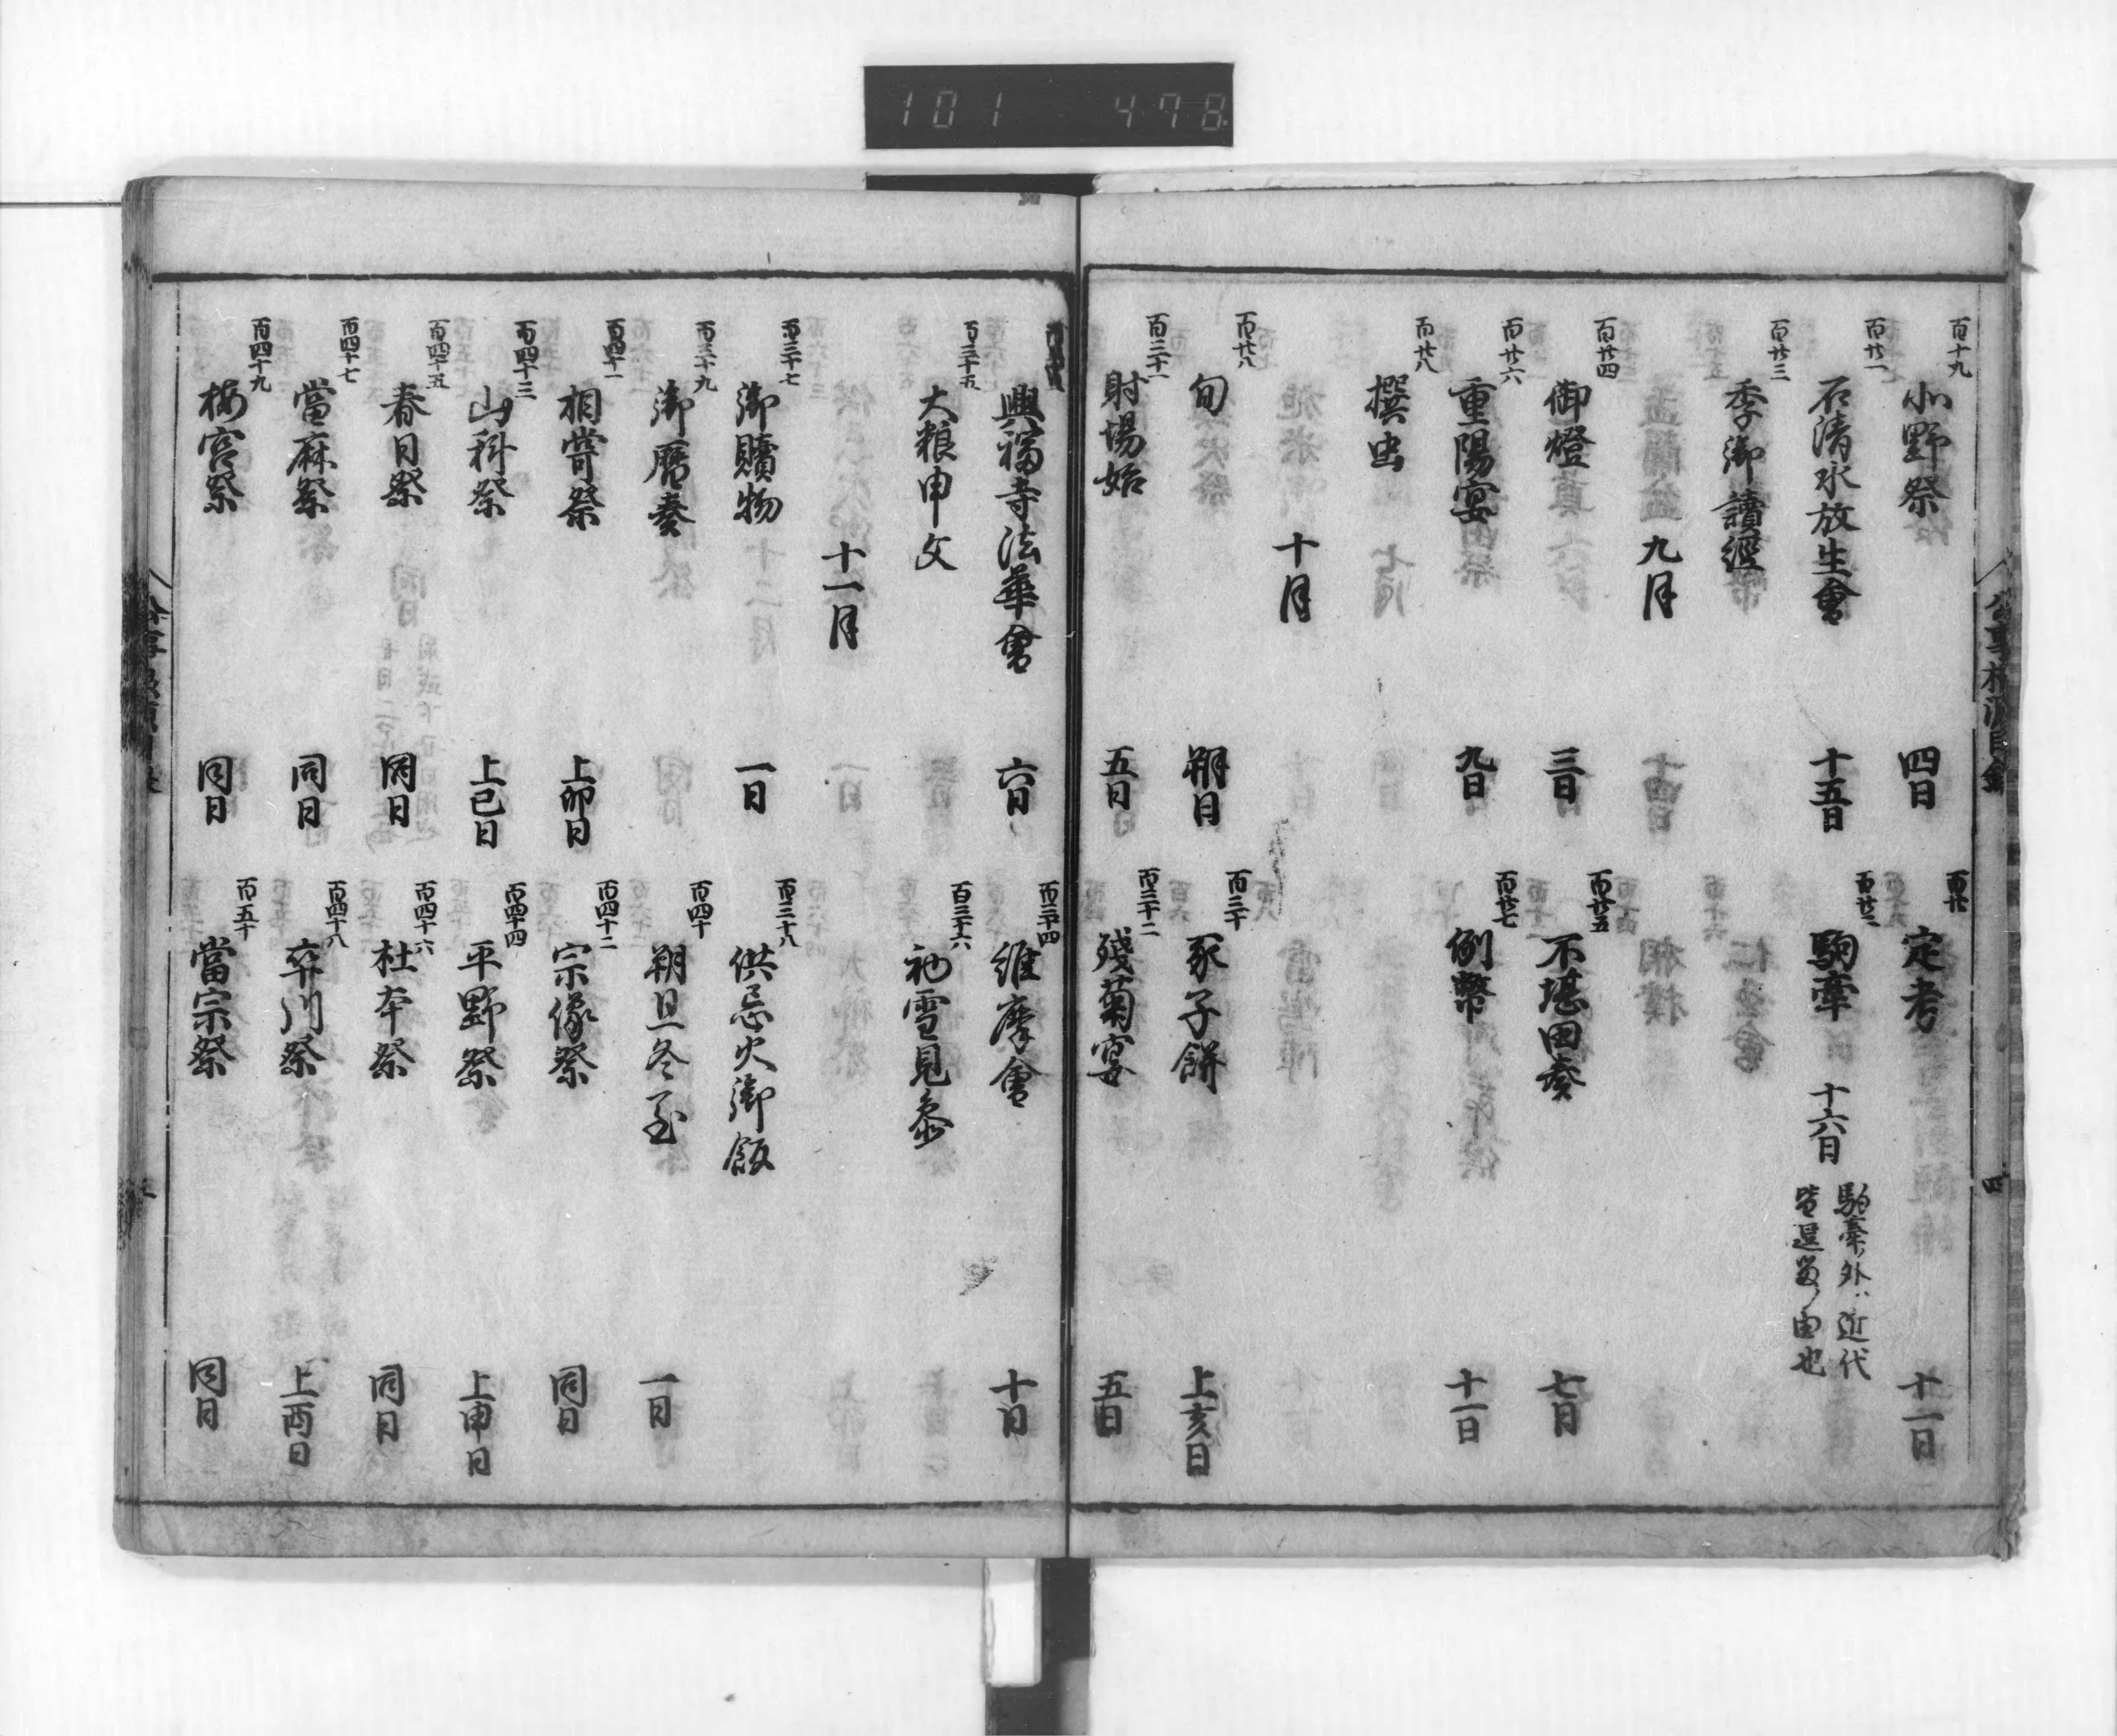 101 478
百十九 北野祭 四日
百廿 定考 十一日
百廿一 石清水放生會 十五日
百廿二 駒牽 十六日 駒牽ノ外ハ近代
皆退轉ノ由也
百廿三 季御讀經
九月
百廿四 御燈 三日
百廿五 不堪田奏 七日
百廿六 重陽宴 九日
百廿七 例幣 十一日
百廿八 撰虫
十月
百廿八 旬 朔日
百三十 豕子餅 上亥日
百三十一 射場始 五日
百三十二 殘菊宴 五日
興福寺法華會 六日
百三十四 維摩會 十日
百三十五 大粮申文
百三十六 初雪見參
十一月
百三十七 御贖物 一日
百三十八 供忌火御飯
百三十九 御暦奏
百四十 朔旦冬至 一日
百四十一 相嘗祭 上卯日
百四十二 宗像祭 同日
百四十三 山科祭 上巳日
百四十四 平野祭 上申日
百四十五 春日祭 同日
百四十六 杜本祭 同日
百四十七 當麻祭 同日
百四十八 卒川祭 上酉日
百四十九 梅宮祭 同日
百五十 當宗祭 同日